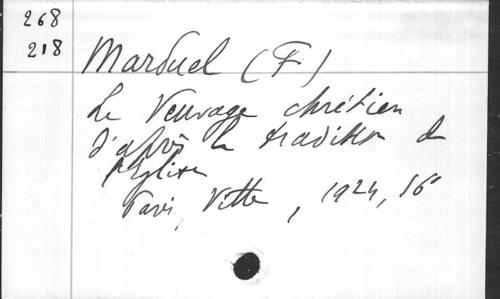 268
218
Marduel (F)
Le Veuvage chrétien
d'après la tradition de
l'Eglise
Paris, Vitte, 1924, 16°